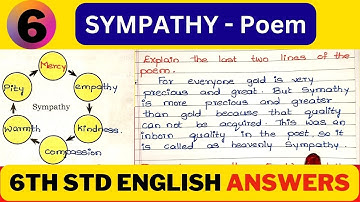 6
SYMPATHY - Poem
Mercy
Pity
empathy
Sympathy
warmth
kindness.
compassion
Explain the last two lines of the
poem.
For everyone gold is very
precious and great. But Symathy
is more precious and greater
than gold because that quality
can not be acquired. This was an
inborn quality in the poet, so it
is called as heavenly Sympathy
6TH STD ENGLISH ANSWERS